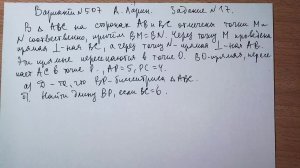 Вариант №507 А. Ларин. Задание №17.
В △ABC на сторонах AB и BC отмечены точки M и
N соответственно, причём BM=BN. Через точку M проведена
прямая ⊥-ная BC, а через точку N - прямая ⊥-ная AB.
Эти прямые пересекаются в точке O. BO-прямая, пересе-
кает AC в точке P, AP=5, PC=4.
а) Д-те, что BP-биссектриса △ABC.
б) Найти длину BP, если BC=6.